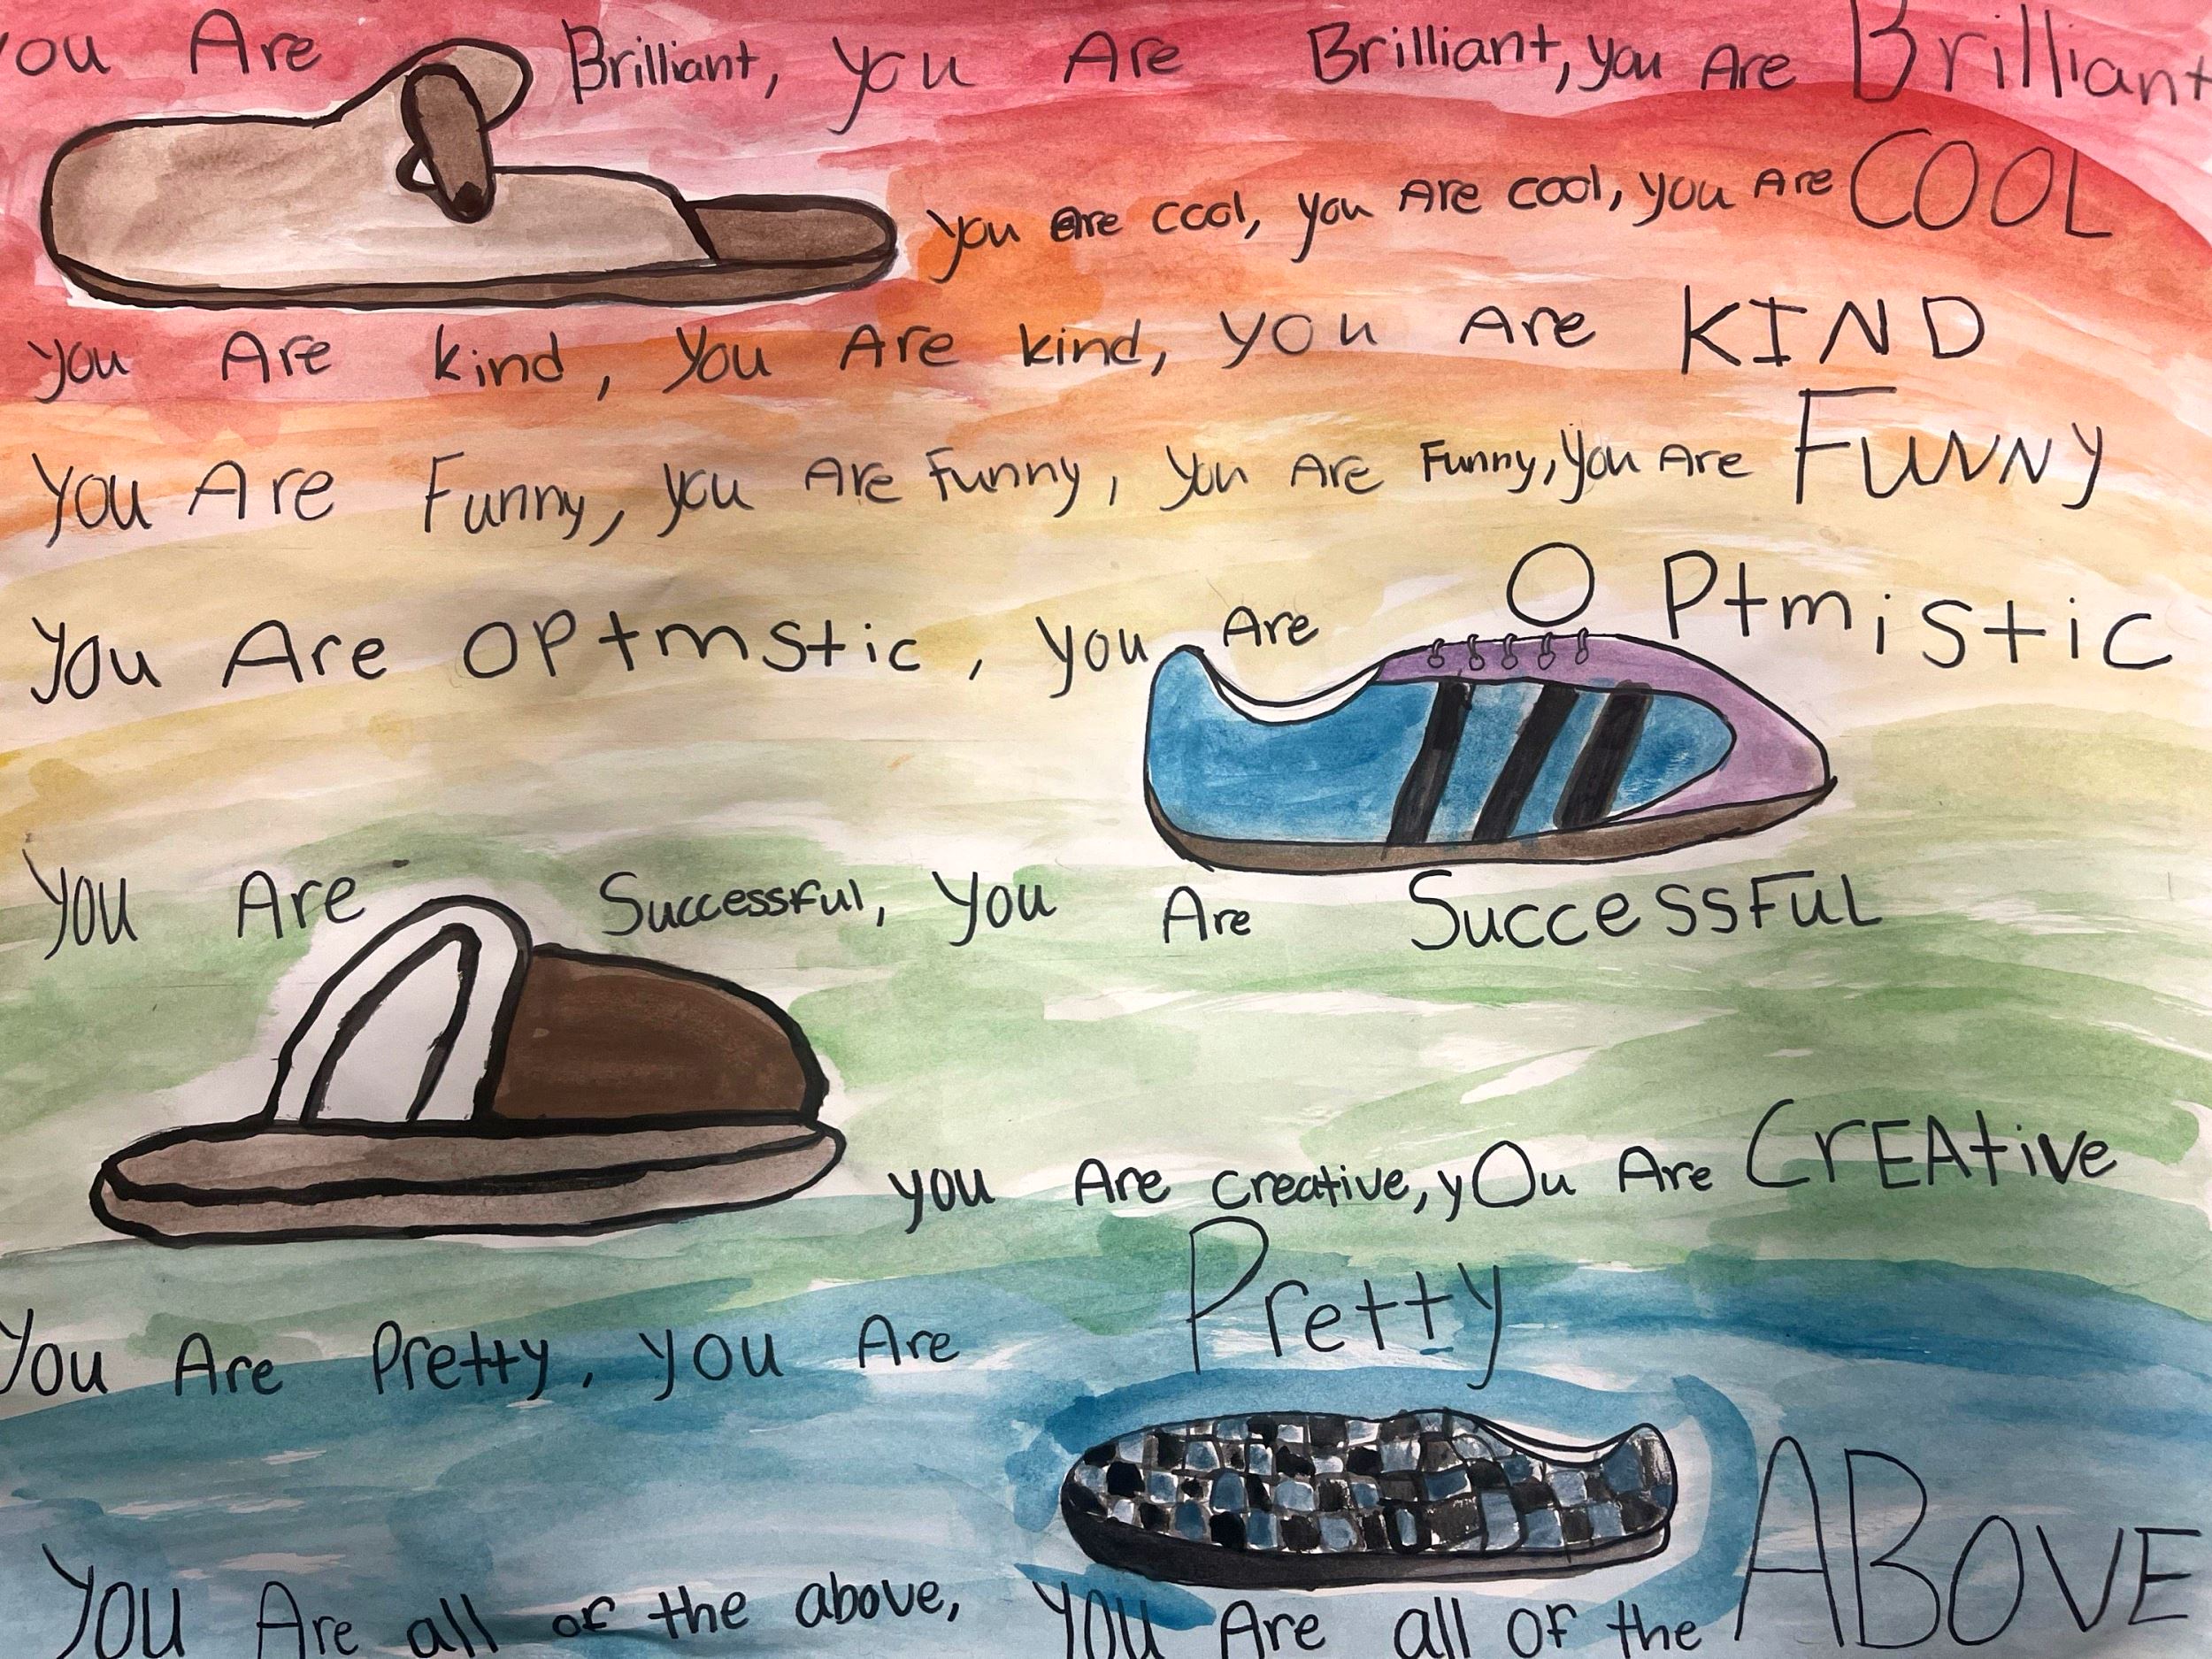 You Are Brilliant, you Are Brilliant, you Are Brilliant
you are cool, you Are cool, you Are COOL
you Are kind, you Are kind, you Are KIND
you Are Funny, you Are Funny, you Are Funny, you Are FUNNY
you Are OPtmstic, you Are OPtmistic
you Are Successful, you Are SuccessFul
you Are creative, yOu Are CrEAtive
You Are Pretty, you Are Pretty
You Are all of the above, you Are all of the ABOVE